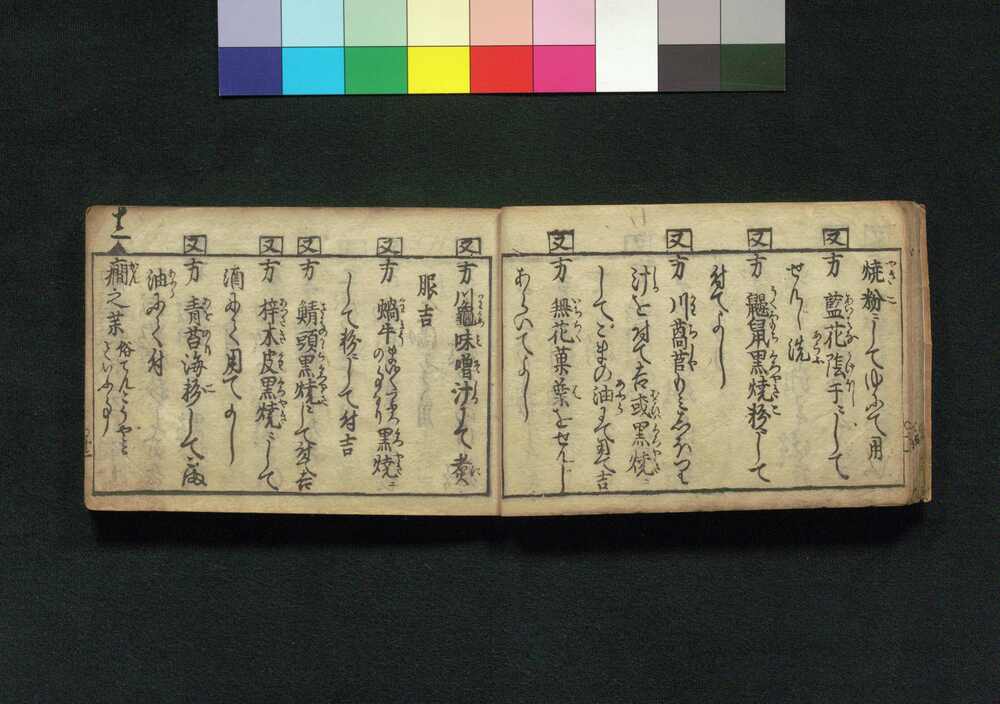 焼粉にしてゆにて用
又方 藍花陰干にして
せんじ洗
又方 鼴鼠黒焼粉にして
付てよし
又方 川萵苣もみしぼり
汁を付て吉或黒焼ニ
してごまの油にて付て吉
又方 無花菓葉をせんじ
あらいてよし
又方 川亀味噌汁にて煮
服吉
又方 蝸牛 黒焼ニ
して粉にして付吉
又方 鯖頭黒焼にして付吉
又方 梓木皮黒焼にして
酒にて用てよし
又方 青苔海粉して
油にて付
十二 癇之薬 俗てんかんやみといふ